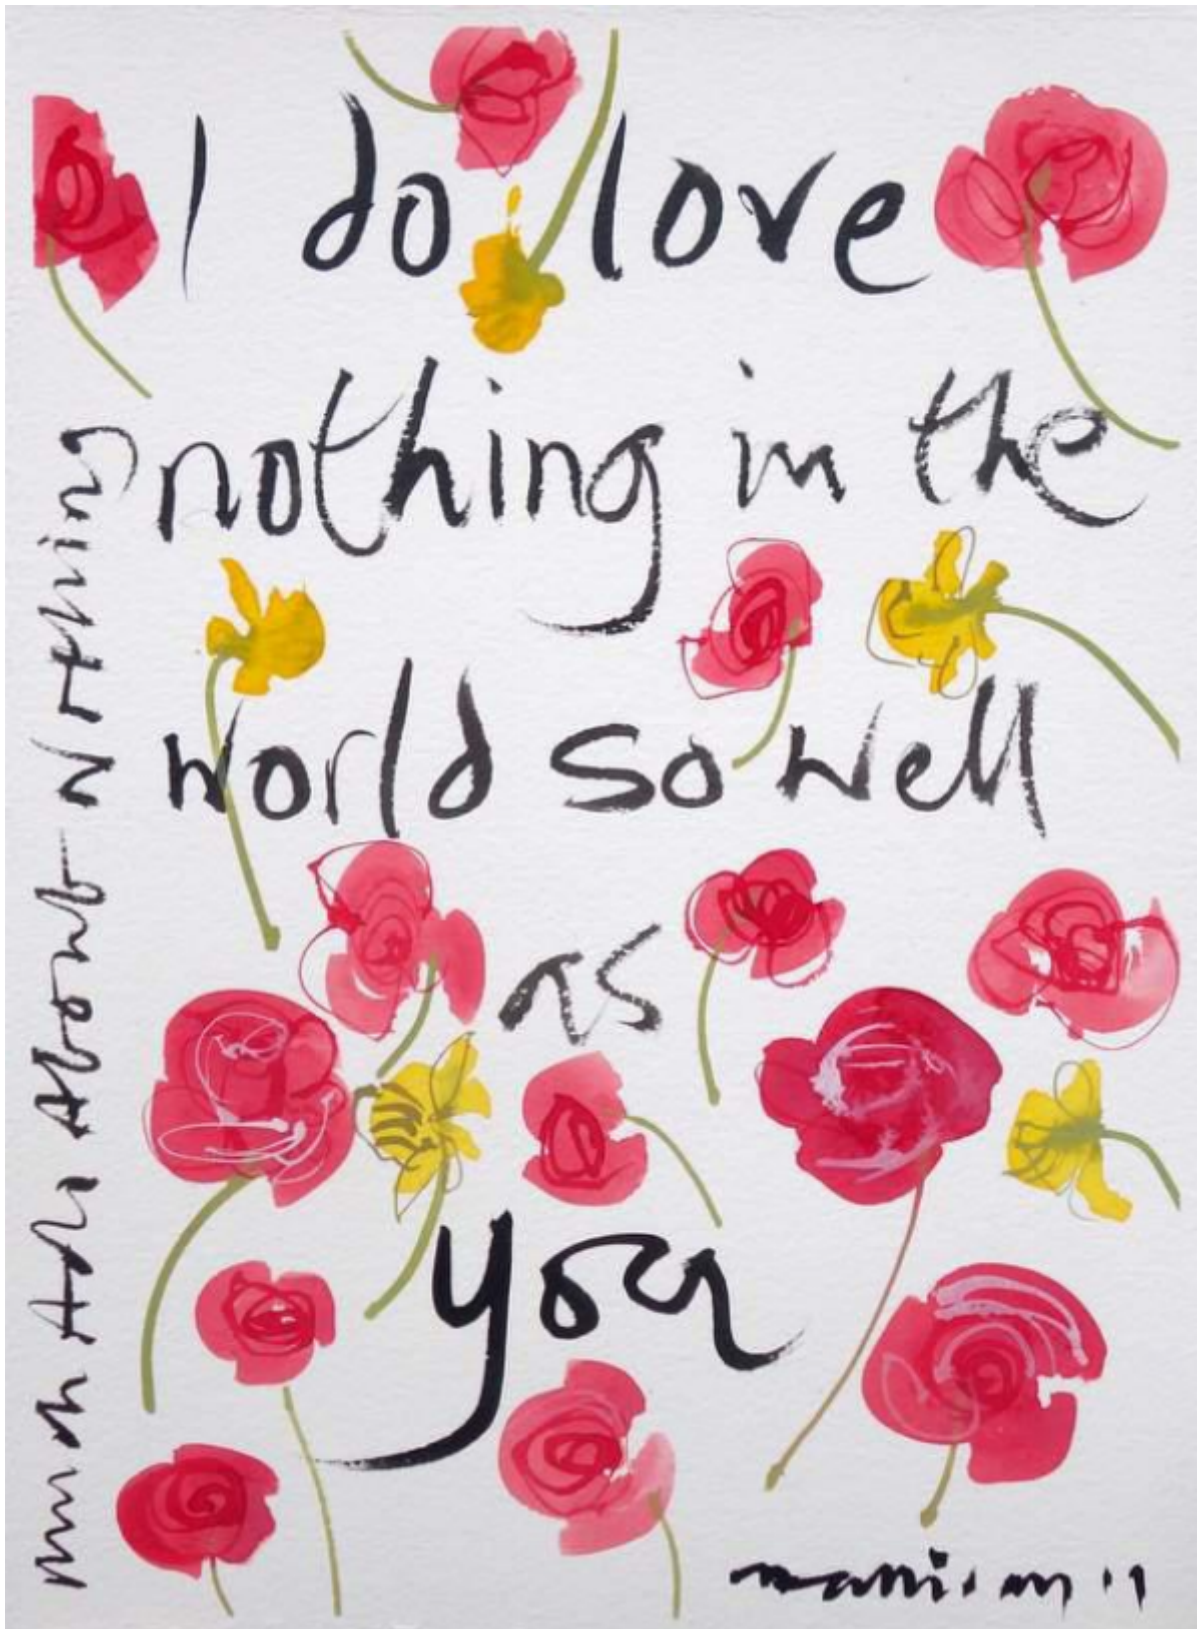 I do love
nothing in the
world so well
as
you
much Ado About Nothing